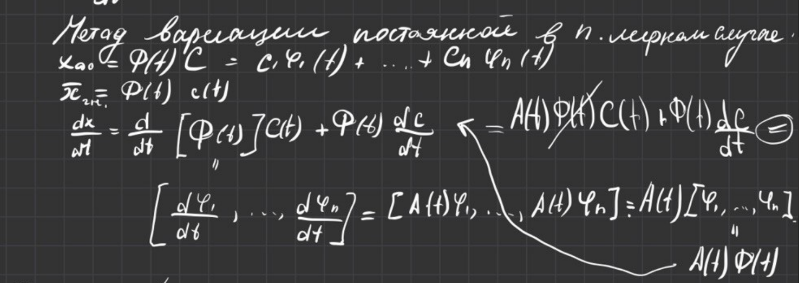 Метод вариации постоянной в n. мерном случае.
x_ао = Φ(t) C = c₁ φ₁(t) + .... + Cn φn(t)
x̅ = Φ(t) c(t)
dx/dt = d/dt [Φ(t)] C(t) + Φ(t) dc/dt = A(t) Φ(t) C(t) + Φ(t) dc/dt =
"
[dφ₁/dt, ..., dφn/dt] = [A(t)φ₁, ..., A(t)φn] = A(t)[φ₁, .., φn]
"
A(t) Φ(t)